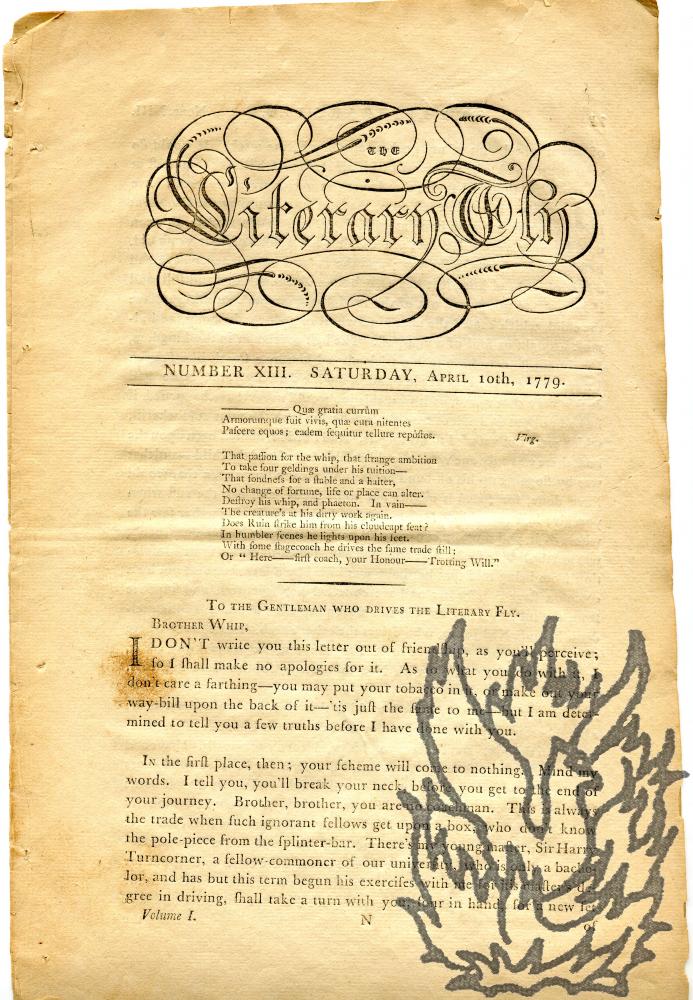 THE
Literary Fly
NUMBER XIII. SATURDAY, APRIL 10th, 1779.
———— Quæ gratia currûm
Armorumque fuit vivis, quæ cura nitentes
Paſcere equos; eadem ſequitur tellure repôſtos.
Virg.
That paſſion for the whip, that ſtrange ambition
To take four geldings under his tuition—
That fondneſs for a ſtable and a halter,
No change of fortune, life or place can alter.
Deſtroy his whip, and phaeton. In vain——
The creature's at his dirty work again.
Does Ruin ſtrike him from his cloudcapt ſeat?
In humbler ſcenes he lights upon his feet.
With ſome ſtagecoach he drives the ſame trade ſtill;
Or “ Here——firſt coach, your Honour——Trotting Will.”
TO THE GENTLEMAN WHO DRIVES THE LITERARY FLY.
BROTHER WHIP,
I DON'T write you this letter out of friendſhip, as you'll perceive;
ſo I ſhall make no apologies for it. As to what you do with it, I
don't care a farthing—you may put your tobacco in it, or make out your
way-bill upon the back of it—'tis juſt the ſame to me—but I am deter-
mined to tell you a few truths before I have done with you.
IN the firſt place, then; your ſcheme will come to nothing. Mind my
words. I tell you, you'll break your neck, before you get to the end of
your journey. Brother, brother, you are no coachman. This is always
the trade when ſuch ignorant fellows get upon a box, who don't know
the pole-piece from the ſplinter-bar. There's my young maſter, Sir Harry
Turncorner, a fellow-commoner of our univerſity, who is only a bache-
lor, and has but this term begun his exerciſes with me for his maſter's de-
gree in driving, ſhall take a turn with you, four in hand, for a new ſet
Volume I.
N
of